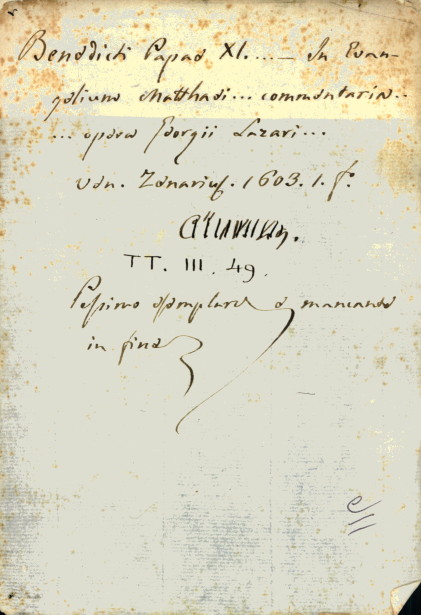 Benedicti Papae XI. ... — In Evan-
gelium Matthaei ... commentaria ..
... opera Georgii Lazari ...
Ven. Zenarius. 1603. 1. f.º
TT. III. 49.
Pessimo esemplare e mancante
in fine